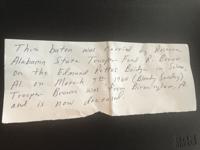 This baton was carried by
Alabama State Trooper Fred R. Brown
on the Edmund Pettus Bridge in Selma,
Al. on March 7th 1965 (Bloody Sunday)
Trooper Brown was from Birmingham, Al
and is now deceased.